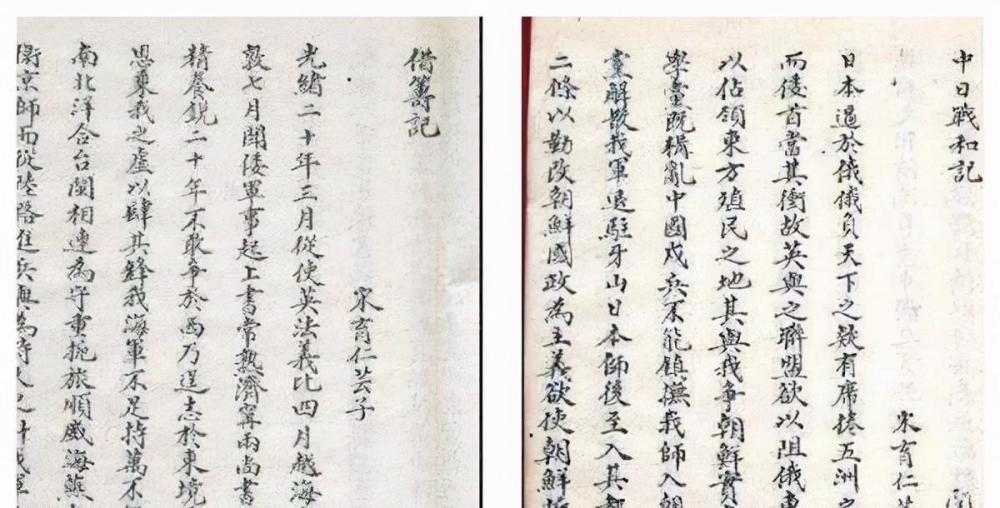 中日戰和記
宋育仁芸
日本逼於俄俄負天下之有席捲五洲之
而倭首當其衝故英與之聯盟欲以阻俄東
以佔領東方殖民之地其與我爭朝鮮實
學黨既搆亂中國戍兵不能鎮撫我師入朝
黨解散我軍退駐牙山日本師後至入其都
二條以勤改朝鮮國政為主義欲使朝鮮
借籌記
宋育仁芸子
光緒二十年三月從使英法義比四月越海
敦七月聞倭軍事起上書常熟濟寧兩尚書
精養銳二十年不敢爭於西乃逞志於東境
思乘我之虛以肆其鋒我海軍不足恃萬不
南北洋合台閩相連為守重扼旅順威海蘇
衛京師而從陸路進兵與為持久